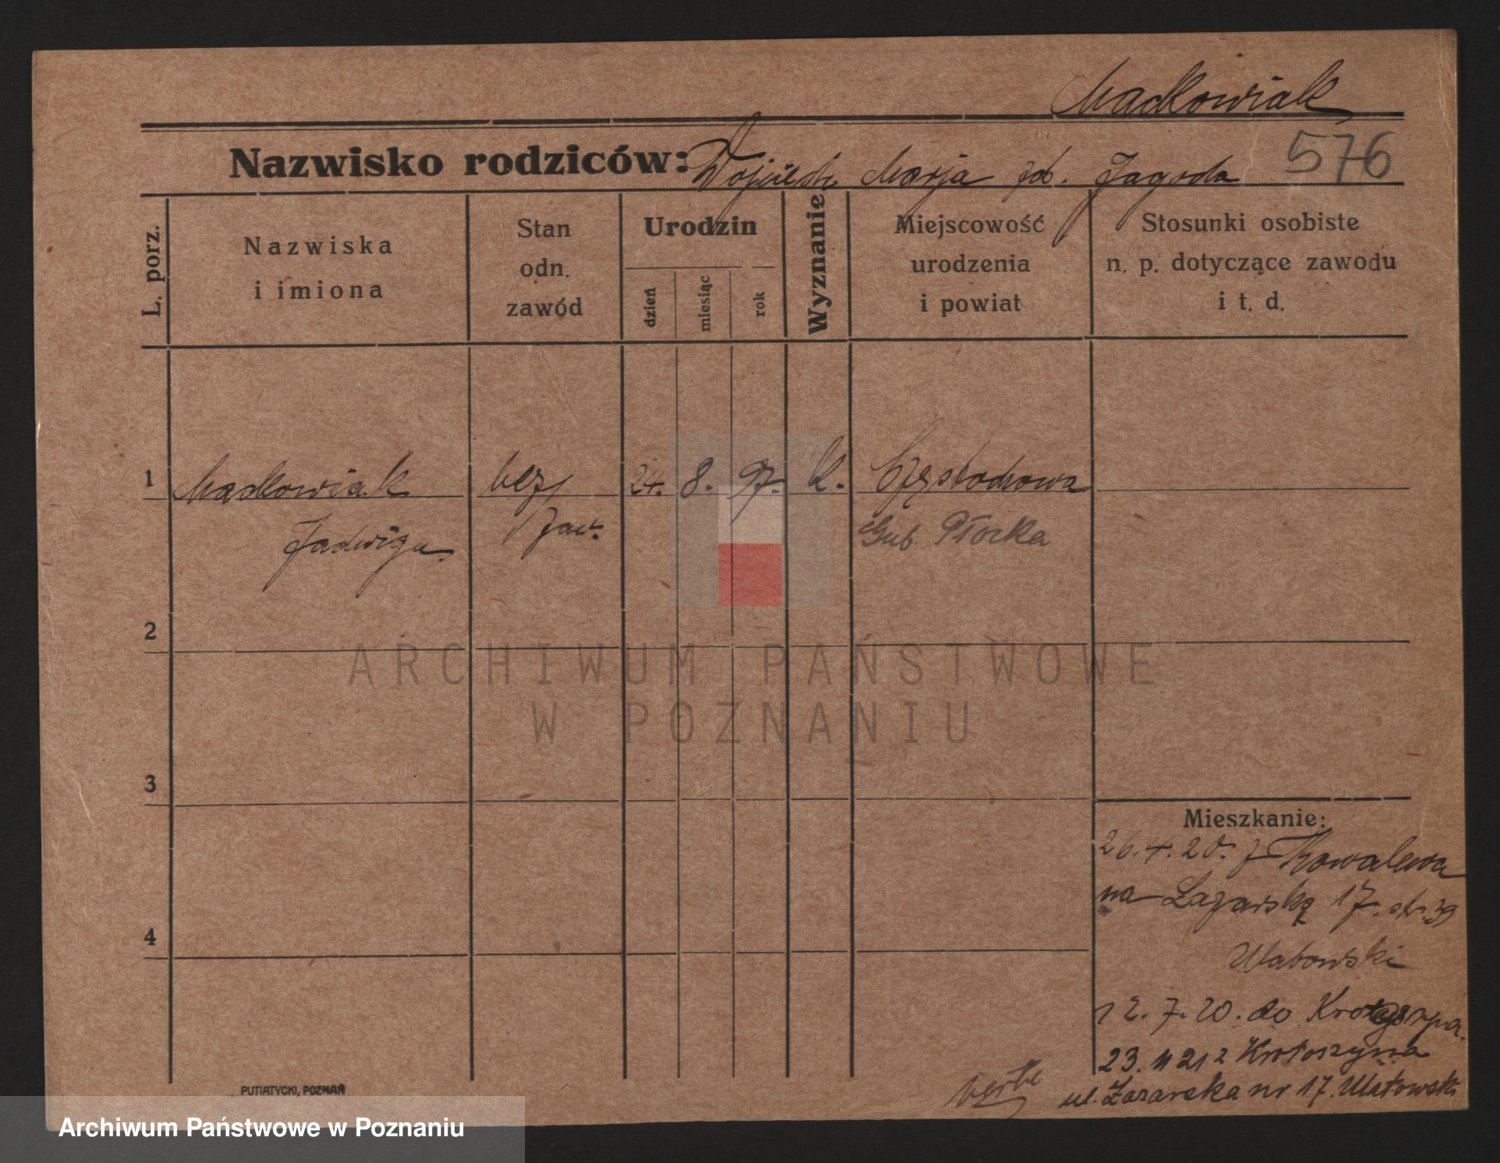 Maćkowiak
Nazwisko rodziców: Wojciech Marja zd. Jagoda 576
L. porz.
Nazwiska
i imiona
Stan
odn.
zawód
Urodzin
dzień
miesiąc
rok
Wyznanie
Miejscowość
urodzenia
i powiat
Stosunki osobiste
n. p. dotyczące zawodu
i t. d.
1 Maćkowiak bez 24. 8. 97. k. Częstochowa
Jadwiga zaw. Gub. Płocka
2
ARCHIWUM PAŃSTWOWE
W POZNANIU
3
Mieszkanie:
26.4.20. z Kowalewa
na Łazarską 17.
4
12.7.20. do Krotoszyna
23. 11 21 z Krotoszyna
ul. Łazarska nr 17.
verte
PUTIATYCKI, POZNAŃ
Archiwum Państwowe w Poznaniu